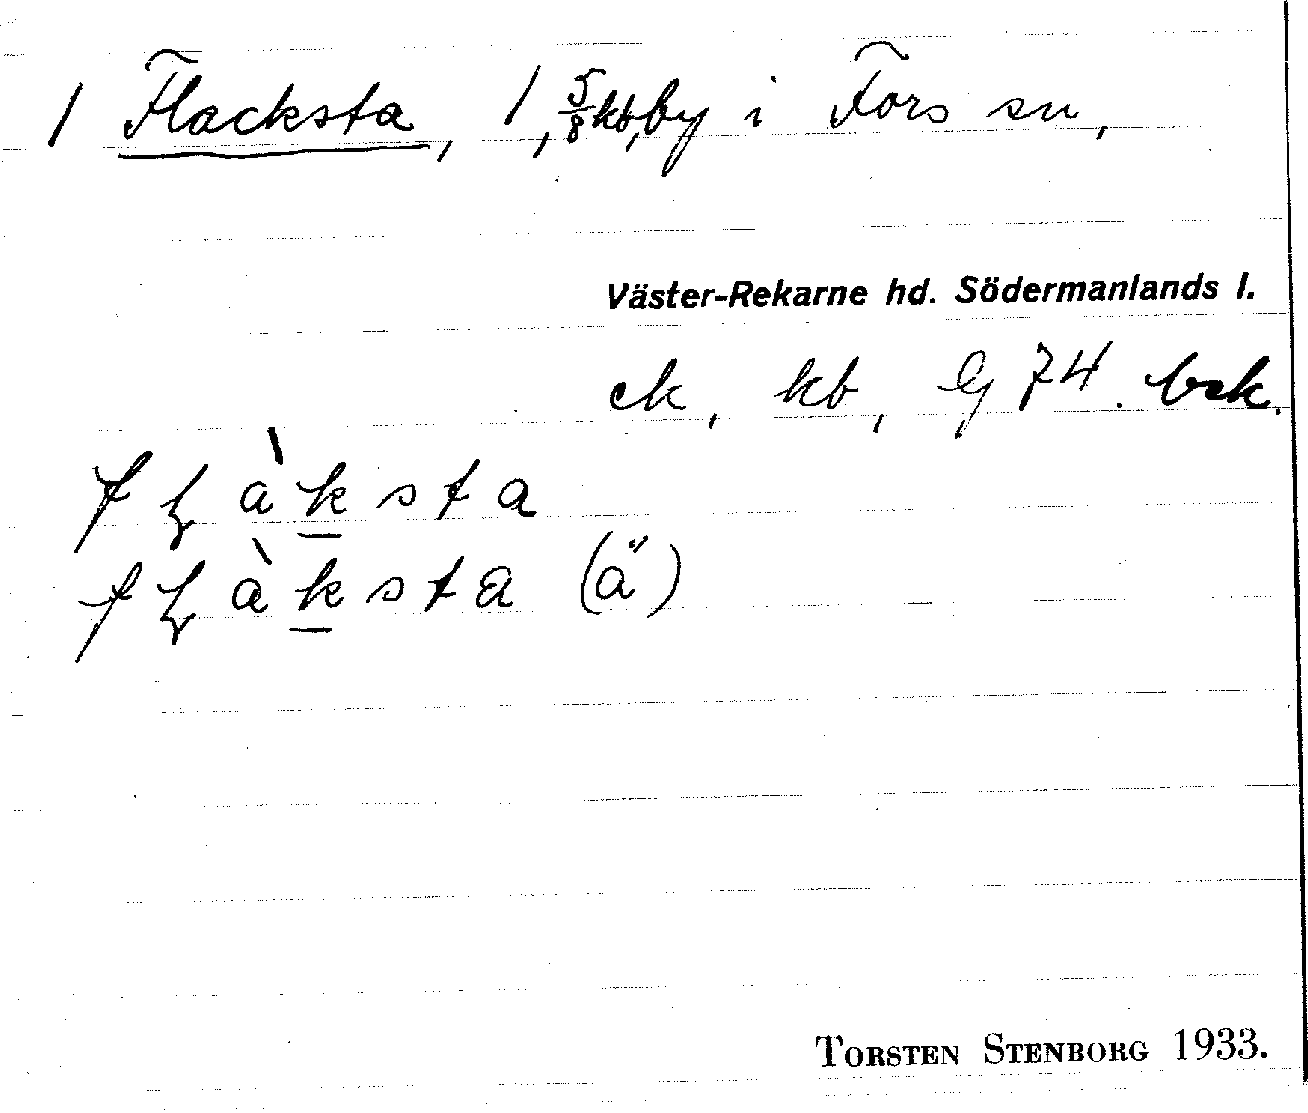 1 Flacksta, 1, 5/8 kb, by i Fors sn,
Väster-Rekarne hd. Södermanlands l.
ek, kb, G 74. bek.
fɭàksta
fɭàksta (ä)
TORSTEN STENBORG 1933.